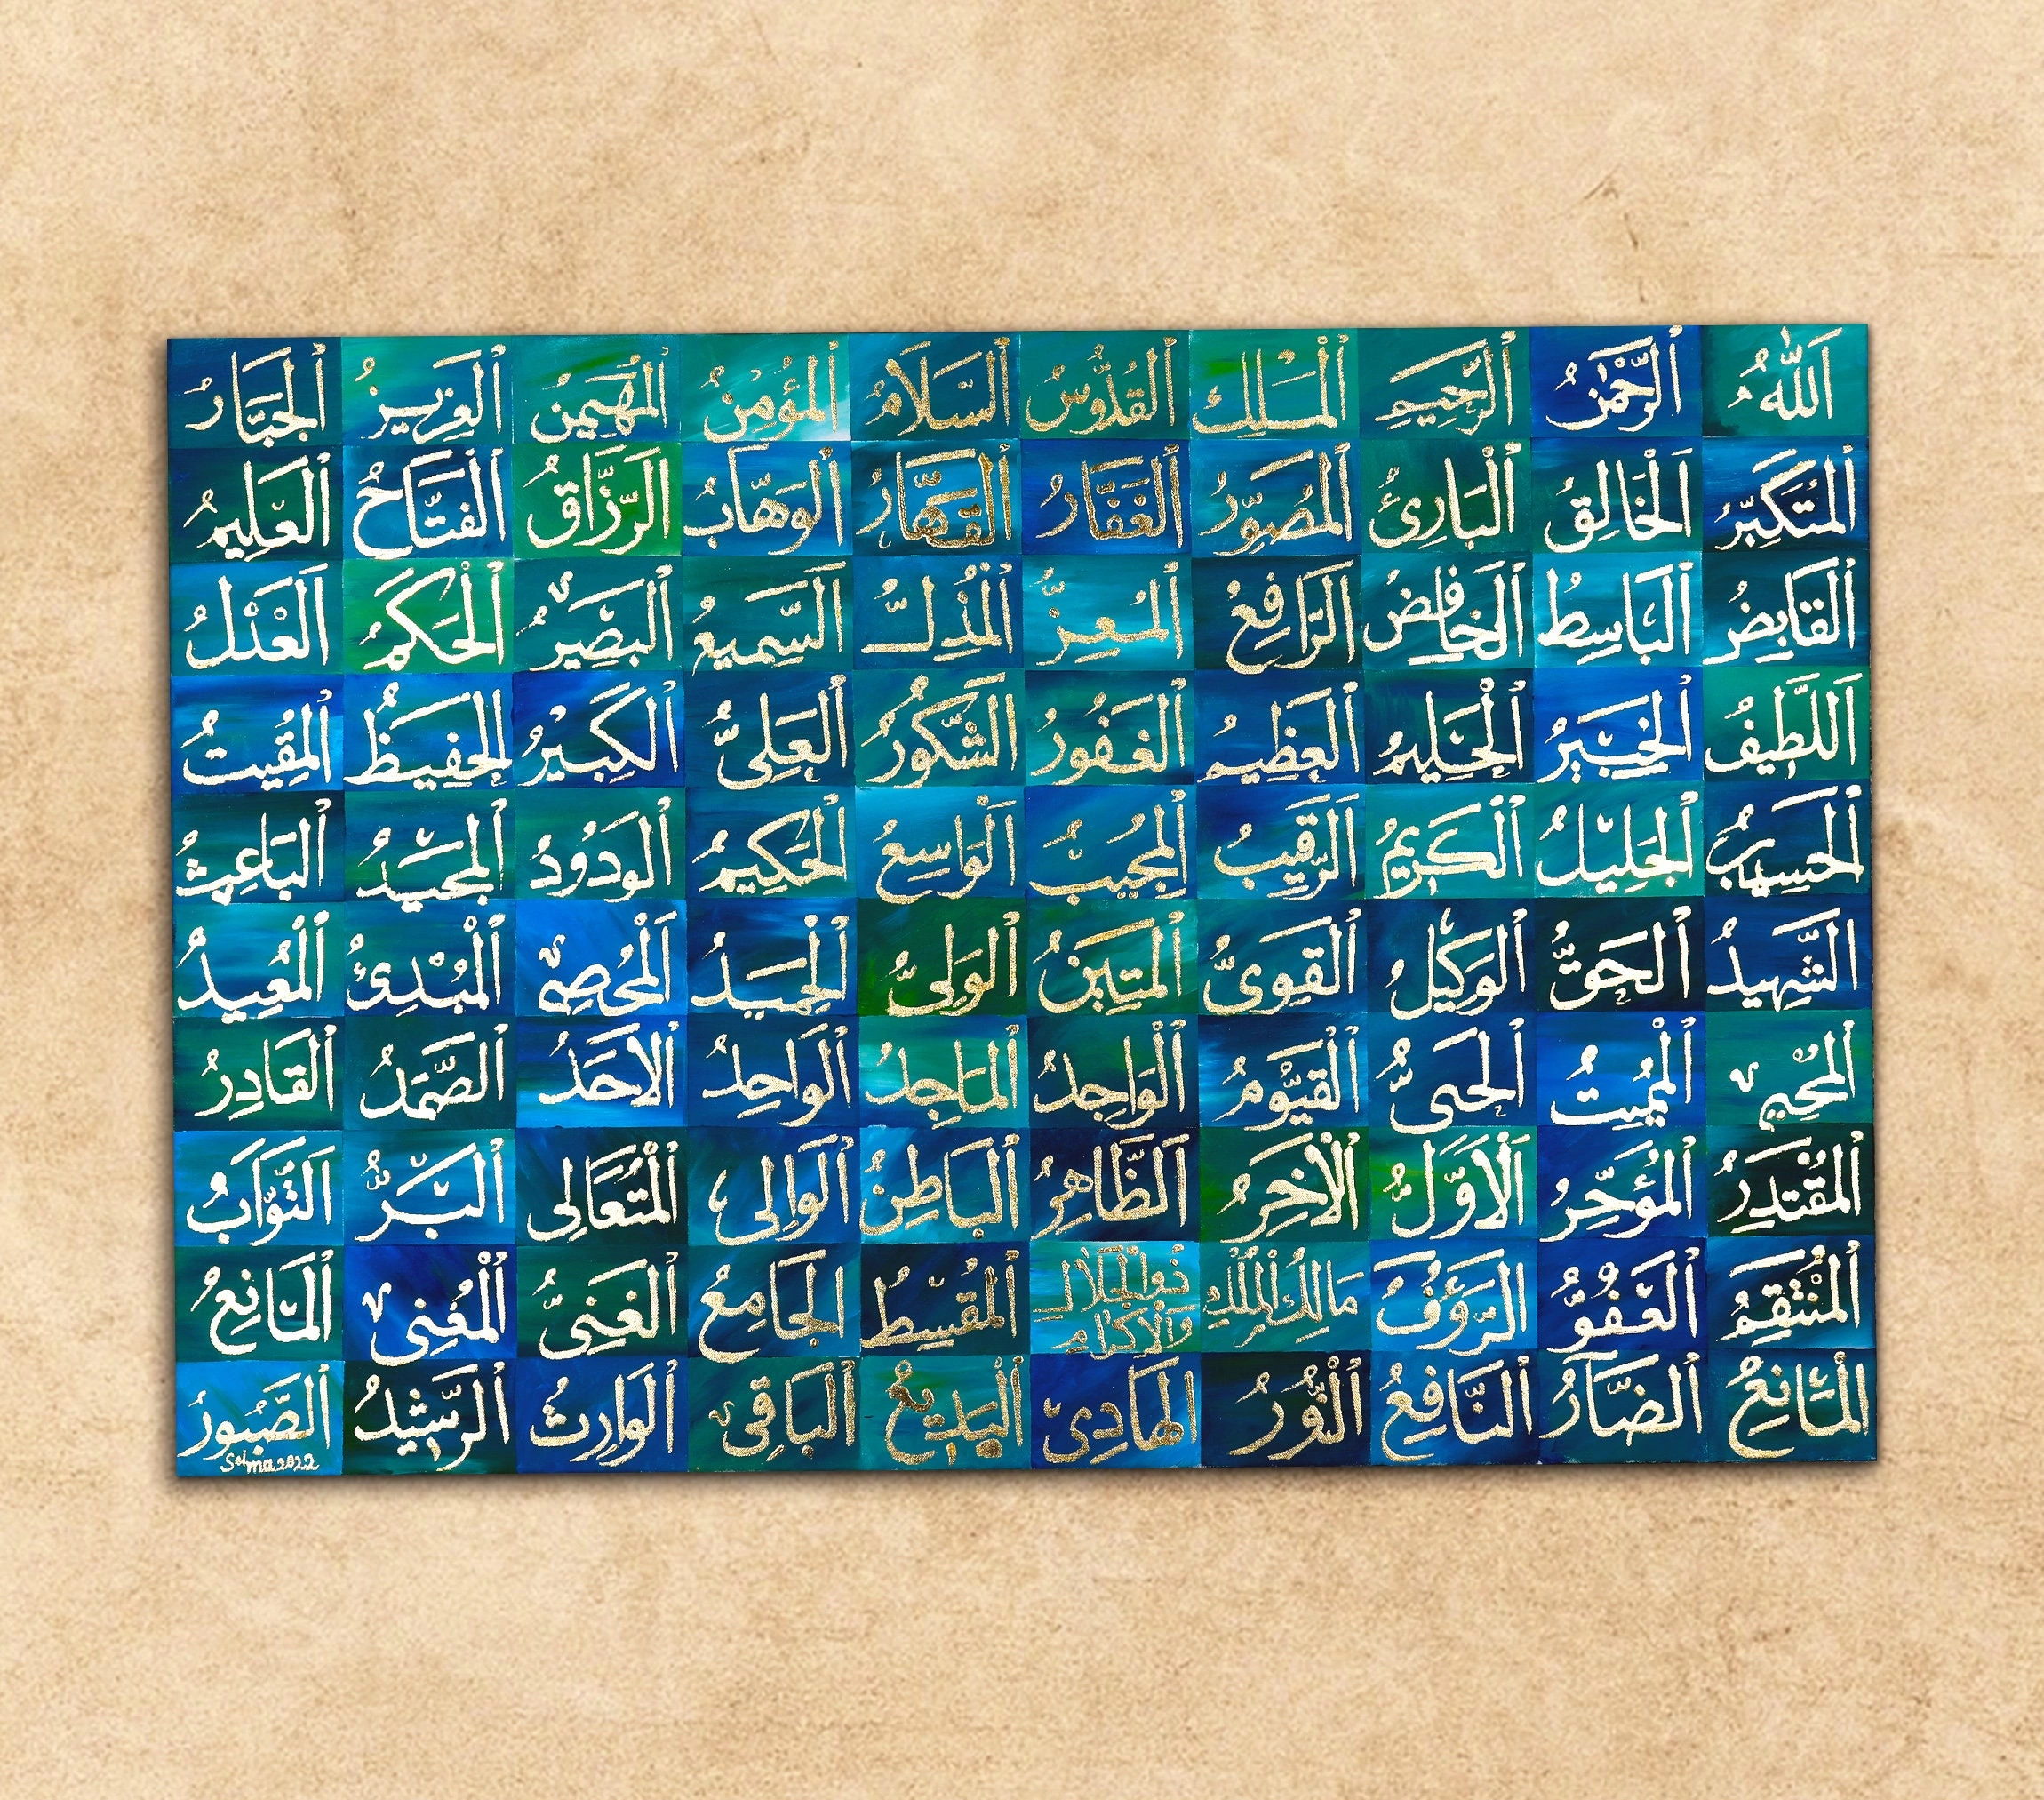 اَللّٰهُ ٱلرَّحْمٰنُ ٱلرَّحِيمُ ٱلْمَلِكُ ٱلْقُدُّوسُ ٱلسَّلَامُ ٱلْمُؤْمِنُ ٱلْمُهَيْمِنُ ٱلْعَزِيزُ ٱلْجَبَّارُ
ٱلْمُتَكَبِّرُ اَلْخَالِقُ ٱلْبَارِئُ ٱلْمُصَوِّرُ ٱلْغَفَّارُ ٱلْقَهَّارُ ٱلْوَهَّابُ الرَّزَّاقُ ٱلْفَتَّاحُ ٱلْعَلِيمُ
ٱلْقَابِضُ ٱلْبَاسِطُ ٱلْخَافِضُ اَلرَّافِعُ ٱلْمُعِزُّ ٱلْمُذِلُّ اَلسَّمِيعُ ٱلْبَصِيرُ ٱلْحَكَمُ اَلْعَدْلُ
اَللَّطِيفُ ٱلْخَبِيرُ ٱلْحَلِيمُ ٱلْعَظِيمُ ٱلْغَفُورُ الشَّكُورُ ٱلْعَلِىُّ ٱلْكَبِيرُ ٱلْحَفِيظُ ٱلْمُقِيتُ
ٱلْحَسِيبُ ٱلْجَلِيلُ ٱلْكَرِيمُ اَلرَّقِيبُ ٱلْمُجِيبُ اَلْوَاسِعُ ٱلْحَكِيمُ ٱلْوَدُودُ ٱلْمَجِيدُ ٱلْبَاعِثُ
الشَّهِيدُ ٱلْحَقُّ ٱلْوَكِيلُ ٱلْقَوِىُّ ٱلْمَتِينُ ٱلْوَلِىُّ ٱلْحَمِيدُ اَلْمُحْصِى ٱلْمُبْدِئُ ٱلْمُعِيدُ
ٱلْمُحْيِى ٱلْمُمِيتُ ٱلْحَىُّ ٱلْقَيُّومُ ٱلْوَاجِدُ ٱلْمَاجِدُ ٱلْوَاحِدُ ٱلْاَحَدُ ٱلصَّمَدُ ٱلْقَادِرُ
ٱلْمُقْتَدِرُ ٱلْمُؤَخِّرُ اَلْأَوَّلُ ٱلْآخِرُ اَلظَّاهِرُ ٱلْبَاطِنُ ٱلْوَالِى ٱلْمُتَعَالِى ٱلْبَرُّ اَلتَّوَّابُ
ٱلْمُنْتَقِمُ ٱلْعَفُوُّ ٱلرَّؤُفُ مَالِكُ ٱلْمُلْكِ ذُوالْجَلَالِ وَالْاِكْرَامِ ٱلْمُقْسِطُ ٱلْجَامِعُ ٱلْغَنِىُّ ٱلْمُغْنِى ٱلْمَانِعُ
ٱلْمَانِعُ ٱلضَّارُّ ٱلنَّافِعُ ٱلنُّورُ ٱلْهَادِىْ ٱلْبَدِيعُ ٱلْبَاقِى ٱلْوَارِثُ ٱلرَّشِيدُ ٱلصَّبُورُ
Selma 2022